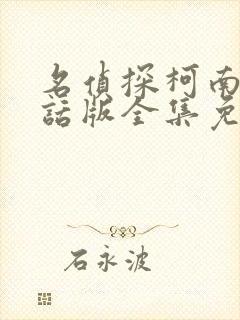 名侦探柯南
話版全集免
石永波